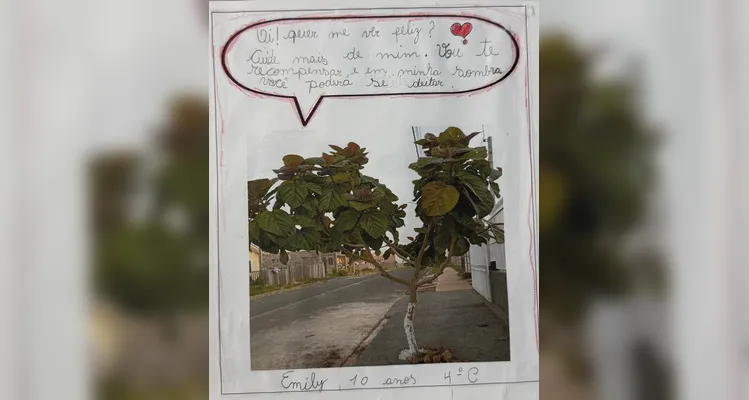 Oi! quer me ver feliz?
Cuide mais de mim. Vou te
recompensar, e em minha sombra
você poderá se deitar.
Emily, 10 anos 4º C